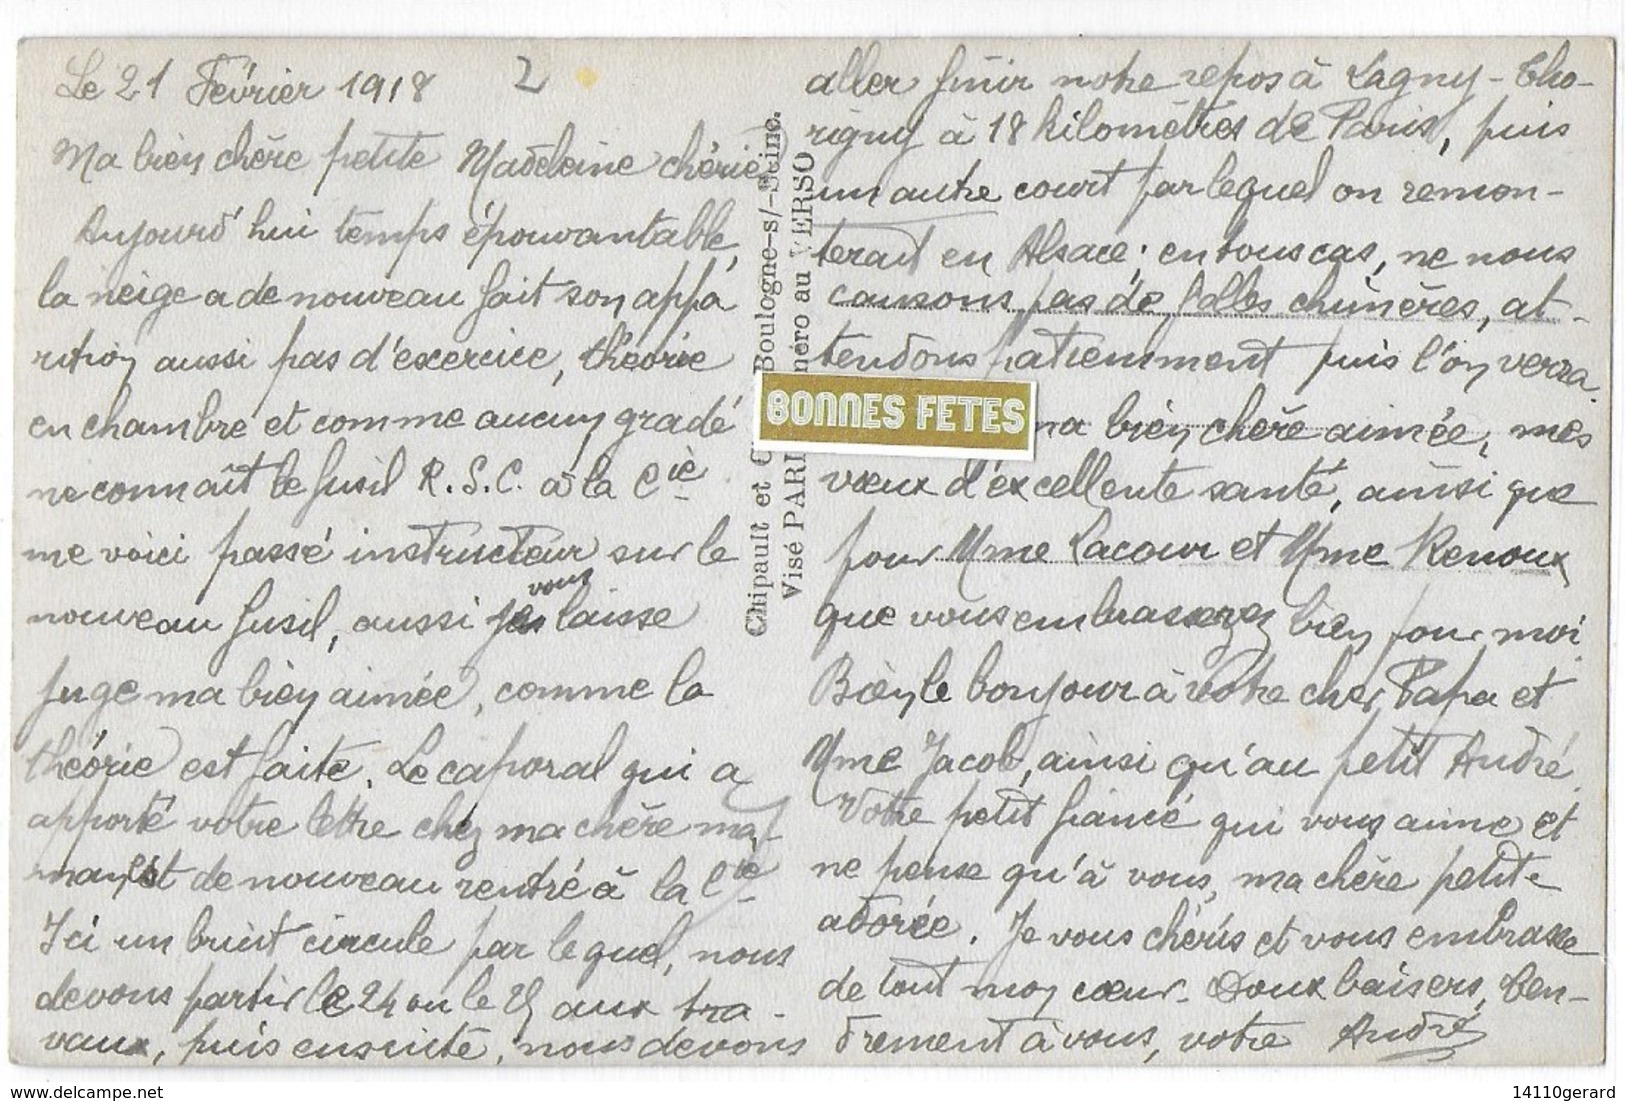 Le 21 Février 1918
2
Ma bien chère petite Madeleine chérie
Aujourd'hui temps épouvantable,
la neige a de nouveau fait son appa
rition aussi pas d'exercice, théorie
en chambre et comme aucun gradé
ne connaît le fusil R.S.C. à la Cie
me voici passé instructeur sur le
nouveau fusil, aussi je vous laisse
juge ma bien aimée, comme la
théorie est faite. Le caporal qui a
apporté votre lettre chez ma chère ma-
man est de nouveau rentré à la Cie
Ici un bruit circule par lequel, nous
devons partir le 24 ou le 25 aux tra-
vaux, puis ensuite, nous devons
aller finir notre repos à Lagny-Tho-
rigny à 18 kilomètres de Paris, puis
un autre court par lequel on remon-
terait en Alsace; en tous cas, ne nous
causons pas de folles chimères, at-
tendons patiemment puis l'on verra.
ma bien chère aimée, mes
vœux d'excellente santé, ainsi que
pour Mme Lacour et Mme Renoux
que vous embrasserez bien pour moi.
Bien le bonjour à votre cher Papa et
Mme Jacob, ainsi qu'au petit André.
Votre petit fiancé qui vous aime et
ne pense qu'à vous, ma chère petite
adorée. Je vous chéris et vous embrasse
de tout mon cœur. Doux baisers, ten-
drement à vous, votre André
Chipault et C Boulogne-s/-Seine.
Visé PARI néro au VERSO
BONNES FETES
www.delcampe.net
14110gerard